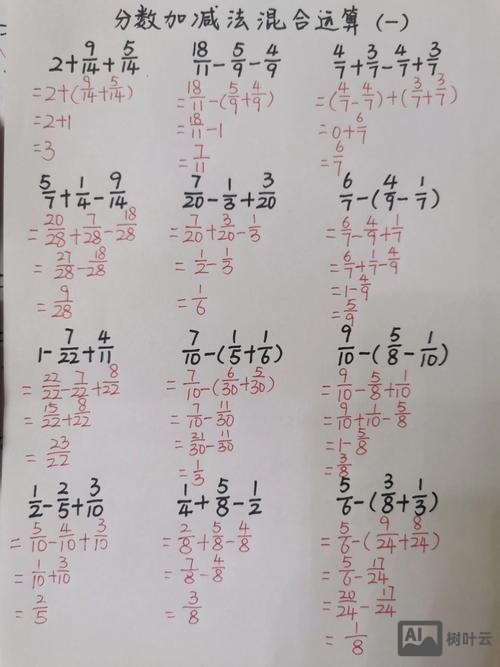 分数加减法混合运算(一)
2+9/14+5/14
=2+(9/14+5/14)
=2+1
=3
18/11-5/9-4/9
=18/11-(5/9+4/9)
=18/11-1
=7/11
4/7+3/7-4/7+3/7
=(4/7-4/7)+(3/7+3/7)
=0+6/7
=6/7
5/7+1/4-9/14
=20/28+7/28-18/28
=27/28-18/28
=9/28
7/20-1/3+3/20
=7/20+3/20-1/3
=1/2-1/3
=1/6
6/7-(4/9-1/7)
=6/7-4/9+1/7
=6/7+1/7-4/9
=1-4/9
=5/9
1-7/22+4/11
=22/22-7/22+8/22
=15/22+8/22
=23/22
7/10-(1/5+1/6)
=7/10-(6/30+5/30)
=7/10-11/30
=21/30-11/30
=1/3
9/10-(5/8-1/10)
=9/10-5/8+1/10
=9/10+1/10-5/8
=1-5/8
=3/8
1/2-2/5+3/10
=5/10-4/10+3/10
=1/10+3/10
=2/5
1/4+5/8-1/2
=2/8+5/8-4/8
=7/8-4/8
=3/8
5/6-(3/8+1/3)
=5/6-(9/24+8/24)
=5/6-17/24
=20/24-17/24
=1/8
AI 树叶云